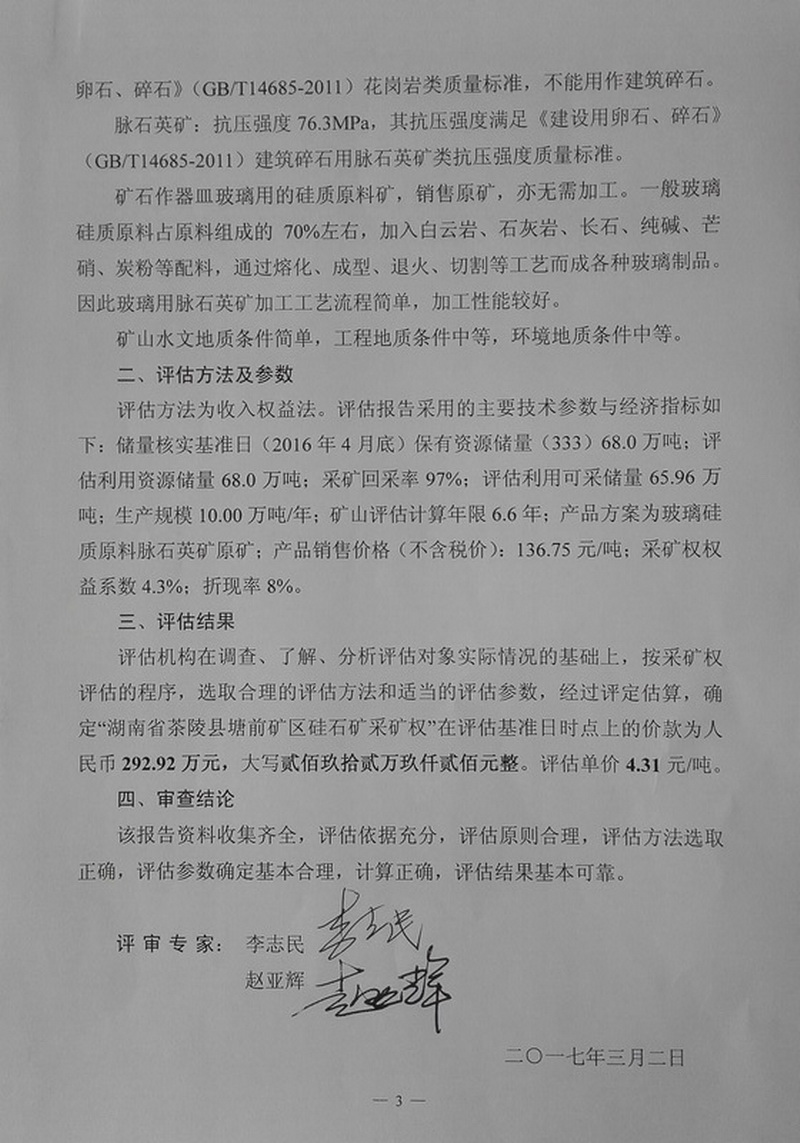 卵石、碎石》（GB/T14685-2011）花岗岩类质量标准，不能用作建筑碎石。
脉石英矿：抗压强度 76.3MPa，其抗压强度满足《建设用卵石、碎石》
（GB/T14685-2011）建筑碎石用脉石英矿类抗压强度质量标准。
矿石作器皿玻璃用的硅质原料矿，销售原矿，亦无需加工。一般玻璃
硅质原料占原料组成的 70%左右，加入白云岩、石灰岩、长石、纯碱、芒
硝、炭粉等配料，通过熔化、成型、退火、切割等工艺而成各种玻璃制品。
因此玻璃用脉石英矿加工工艺流程简单，加工性能较好。
矿山水文地质条件简单，工程地质条件中等，环境地质条件中等。
二、评估方法及参数
评估方法为收入权益法。评估报告采用的主要技术参数与经济指标如
下：储量核实基准日（2016 年 4 月底）保有资源储量（333）68.0 万吨；评
估利用资源储量 68.0 万吨；采矿回采率 97%；评估利用可采储量 65.96 万
吨；生产规模 10.00 万吨/年；矿山评估计算年限 6.6 年；产品方案为玻璃硅
质原料脉石英矿原矿；产品销售价格（不含税价）：136.75 元/吨；采矿权权
益系数 4.3%；折现率 8%。
三、评估结果
评估机构在调查、了解、分析评估对象实际情况的基础上，按采矿权
评估的程序，选取合理的评估方法和适当的评估参数，经过评定估算，确
定“湖南省茶陵县塘前矿区硅石矿采矿权”在评估基准日时点上的价款为人
民币 292.92 万元，大写贰佰玖拾贰万玖仟贰佰元整。评估单价 4.31 元/吨。
四、审查结论
该报告资料收集齐全，评估依据充分，评估原则合理，评估方法选取
正确，评估参数确定基本合理，计算正确，评估结果基本可靠。
评 审 专 家： 李志民 李志民
赵亚辉 赵亚辉
二〇一七年三月二日
— 3 —